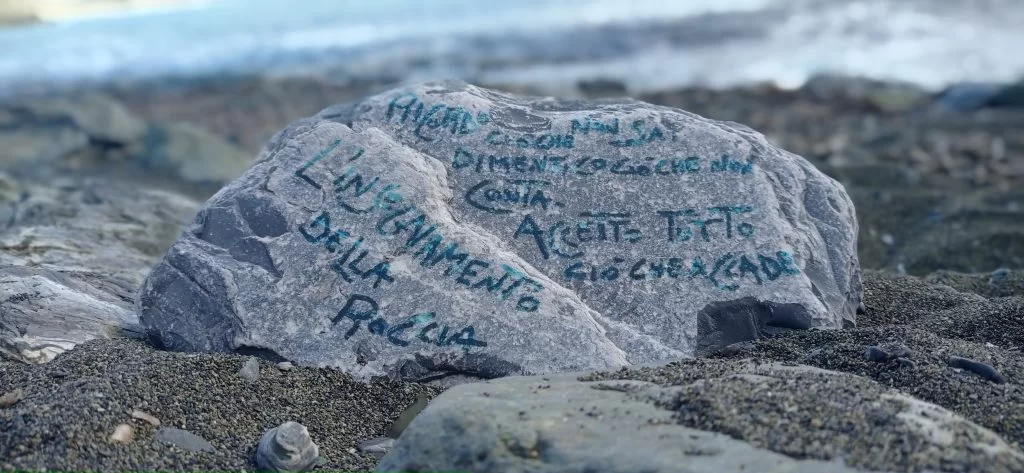 L'INSEGNAMENTO
DELLA
ROCCIA
ASCOLTO
CIÒ CHE NON SAI
DIMENTICO CIÒ CHE NON
CONTA.
ACCETTO TUTTO
CIÒ CHE ACCADE